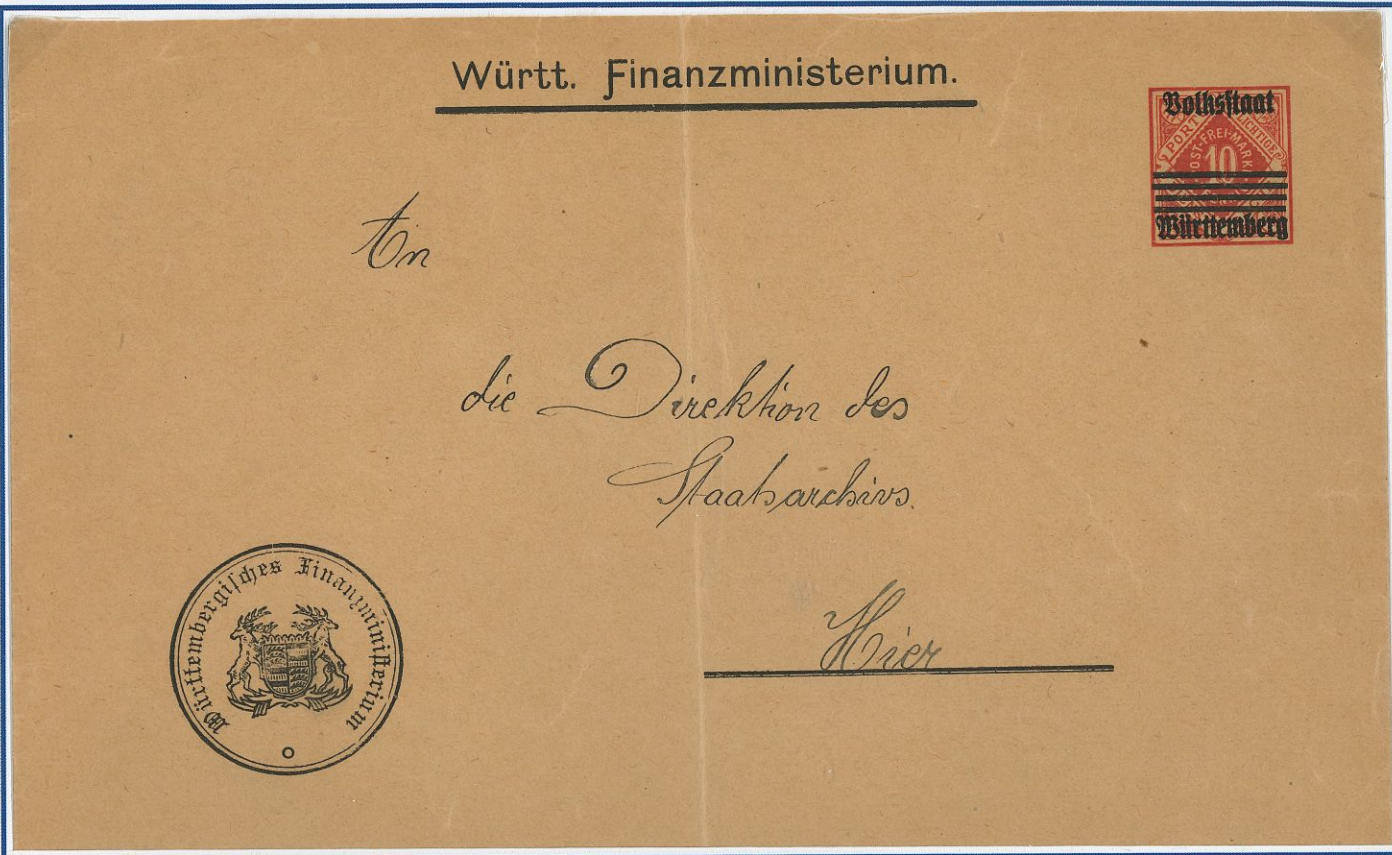 Württ. Finanzministerium.
Volksstaat
PORT LICHTIGE
POST-FREI-MARK
10
Württemberg
An
die Direktion des
Staatsarchivs.
Hier
Württembergisches Finanzministerium